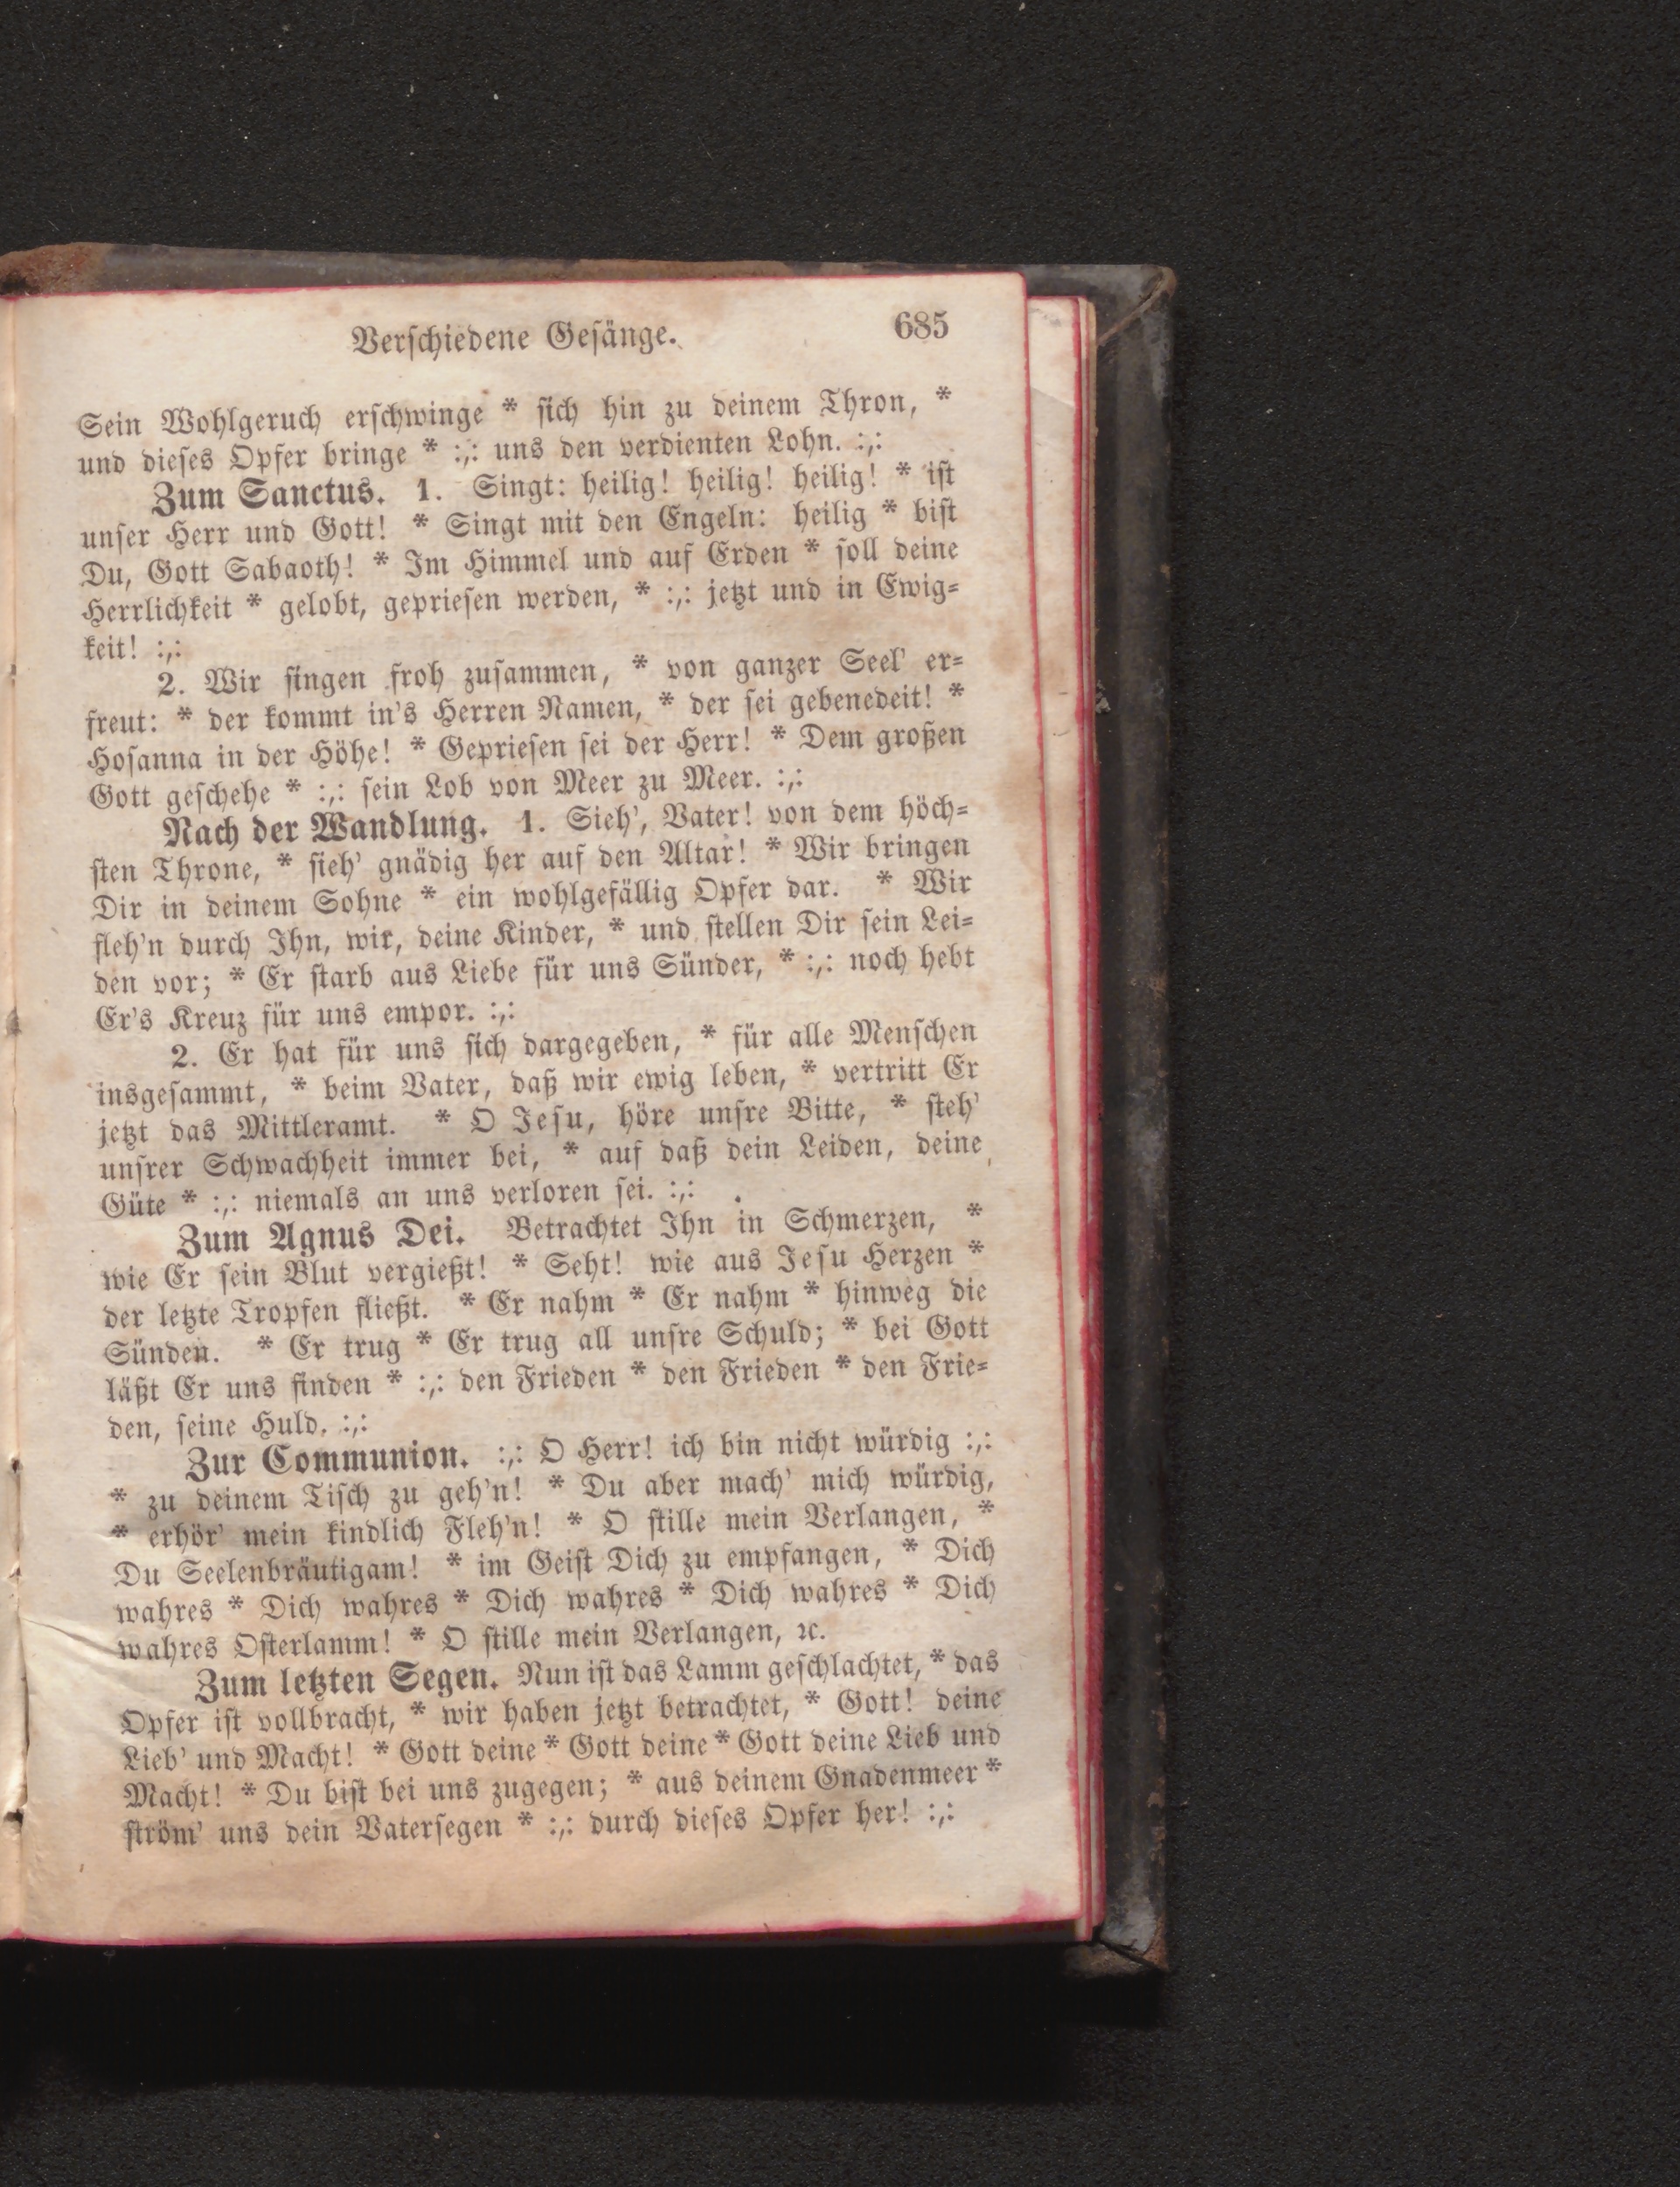 Verſchiedene Geſänge. 685
Sein Wohlgeruch erſchwinge * ſich hin zu deinem Thron, *
und dieſes Opfer bringe * :,: uns den verdienten Lohn. :,:
Zum Sanctus. 1. Singt: heilig! heilig! heilig! * iſt
unſer Herr und Gott! * Singt mit den Engeln: heilig * biſt
Du, Gott Sabaoth! * Im Himmel und auf Erden * ſoll deine
Herrlichkeit * gelobt, geprieſen werden, * :,: jetzt und in Ewig=
keit! :,:
2. Wir ſingen froh zuſammen, * von ganzer Seel' er=
freut: * der kommt in's Herren Namen, * der ſei gebenedeit! *
Hoſanna in der Höhe! * Geprieſen ſei der Herr! * Dem großen
Gott geſchehe * :,: ſein Lob von Meer zu Meer. :,:
Nach der Wandlung. 1. Sieh', Vater! von dem höch=
ſten Throne, * ſieh' gnädig her auf den Altar! * Wir bringen
Dir in deinem Sohne * ein wohlgefällig Opfer dar. * Wir
fleh'n durch Ihn, wir, deine Kinder, * und ſtellen Dir ſein Lei=
den vor; * Er ſtarb aus Liebe für uns Sünder, * :,: noch hebt
Er's Kreuz für uns empor. :,:
2. Er hat für uns ſich dargegeben, * für alle Menſchen
insgeſammt, * beim Vater, daß wir ewig leben, * vertritt Er
jetzt das Mittleramt. * O Jeſu, höre unſre Bitte, * ſteh'
unſrer Schwachheit immer bei, * auf daß dein Leiden, deine
Güte * :,: niemals an uns verloren ſei. :,:
Zum Agnus Dei. Betrachtet Ihn in Schmerzen, *
wie Er ſein Blut vergießt! * Seht! wie aus Jeſu Herzen *
der letzte Tropfen fließt. * Er nahm * Er nahm * hinweg die
Sünden. * Er trug * Er trug all unſre Schuld; * bei Gott
läßt Er uns finden * :,: den Frieden * den Frieden * den Frie=
den, ſeine Huld. :,:
Zur Communion. :,: O Herr! ich bin nicht würdig :,:
* zu deinem Tiſch zu geh'n! * Du aber mach' mich würdig,
* erhör' mein kindlich Fleh'n! * O ſtille mein Verlangen, *
Du Seelenbräutigam! * im Geiſt Dich zu empfangen, * Dich
wahres * Dich wahres * Dich wahres * Dich wahres * Dich
wahres Oſterlamm! * O ſtille mein Verlangen, ꝛc.
Zum letzten Segen. Nun iſt das Lamm geſchlachtet, * das
Opfer iſt vollbracht, * wir haben jetzt betrachtet, * Gott! deine
Lieb' und Macht! * Gott deine * Gott deine * Gott deine Lieb und
Macht! * Du biſt bei uns zugegen; * aus deinem Gnadenmeer *
ſtröm' uns dein Vaterſegen * :,: durch dieſes Opfer her! :,: